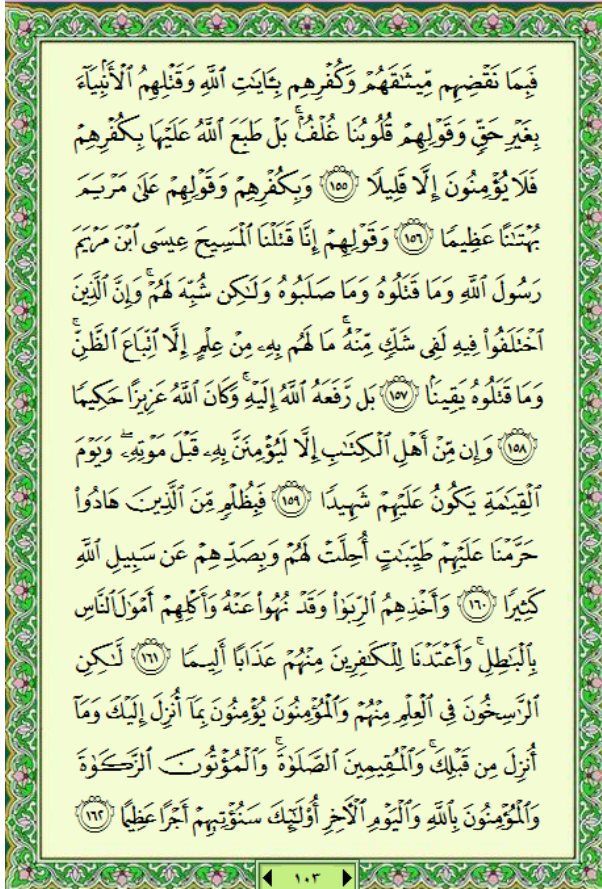 فَبِمَا نَقْضِهِم مِّيثَٰقَهُمْ وَكُفْرِهِم بِـَٔايَٰتِ ٱللَّهِ وَقَتْلِهِمُ ٱلْأَنۢبِيَآءَ
بِغَيْرِ حَقٍّ وَقَوْلِهِمْ قُلُوبُنَا غُلْفٌۢ ۚ بَلْ طَبَعَ ٱللَّهُ عَلَيْهَا بِكُفْرِهِمْ
فَلَا يُؤْمِنُونَ إِلَّا قَلِيلًا ١٥٥ وَبِكُفْرِهِمْ وَقَوْلِهِمْ عَلَىٰ مَرْيَمَ
بُهْتَٰنًا عَظِيمًا ١٥٦ وَقَوْلِهِمْ إِنَّا قَتَلْنَا ٱلْمَسِيحَ عِيسَى ٱبْنَ مَرْيَمَ
رَسُولَ ٱللَّهِ وَمَا قَتَلُوهُ وَمَا صَلَبُوهُ وَلَٰكِن شُبِّهَ لَهُمْ ۚ وَإِنَّ ٱلَّذِينَ
ٱخْتَلَفُوا۟ فِيهِ لَفِى شَكٍّ مِّنْهُ ۚ مَا لَهُم بِهِۦ مِنْ عِلْمٍ إِلَّا ٱتِّبَاعَ ٱلظَّنِّ ۚ
وَمَا قَتَلُوهُ يَقِينًۢا ١٥٧ بَل رَّفَعَهُ ٱللَّهُ إِلَيْهِ ۚ وَكَانَ ٱللَّهُ عَزِيزًا حَكِيمًا
١٥٨ وَإِن مِّنْ أَهْلِ ٱلْكِتَٰبِ إِلَّا لَيُؤْمِنَنَّ بِهِۦ قَبْلَ مَوْتِهِۦ ۖ وَيَوْمَ
ٱلْقِيَٰمَةِ يَكُونُ عَلَيْهِمْ شَهِيدًا ١٥٩ فَبِظُلْمٍ مِّنَ ٱلَّذِينَ هَادُوا۟
حَرَّمْنَا عَلَيْهِمْ طَيِّبَٰتٍ أُحِلَّتْ لَهُمْ وَبِصَدِّهِمْ عَن سَبِيلِ ٱللَّهِ
كَثِيرًا ١٦٠ وَأَخْذِهِمُ ٱلرِّبَوٰا۟ وَقَدْ نُهُوا۟ عَنْهُ وَأَكْلِهِمْ أَمْوَٰلَ ٱلنَّاسِ
بِٱلْبَٰطِلِ ۚ وَأَعْتَدْنَا لِلْكَٰفِرِينَ مِنْهُمْ عَذَابًا أَلِيمًا ١٦١ لَّٰكِنِ
ٱلرَّٰسِخُونَ فِى ٱلْعِلْمِ مِنْهُمْ وَٱلْمُؤْمِنُونَ يُؤْمِنُونَ بِمَآ أُنزِلَ إِلَيْكَ وَمَآ
أُنزِلَ مِن قَبْلِكَ ۚ وَٱلْمُقِيمِينَ ٱلصَّلَوٰةَ ۚ وَٱلْمُؤْتُونَ ٱلزَّكَوٰةَ
وَٱلْمُؤْمِنُونَ بِٱللَّهِ وَٱلْيَوْمِ ٱلْـَٔاخِرِ أُو۟لَٰٓئِكَ سَنُؤْتِيهِمْ أَجْرًا عَظِيمًا ١٦٢
١٠٣